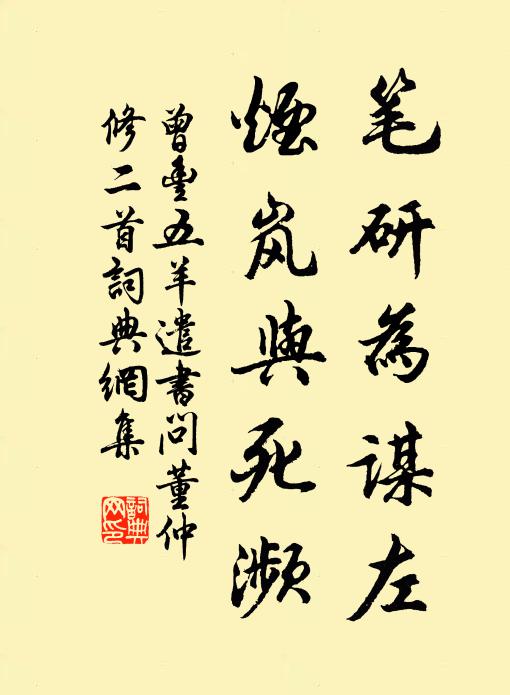 笔研為谋左
煙岚與死濒
曾豊五羊遣書问董仲
修二首詞典網集
詞典网印